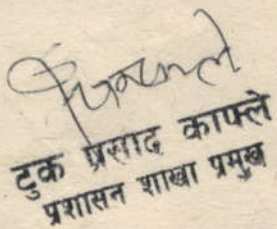 टुक प्रसाद काफ्ले
प्रशासन शाखा प्रमुख